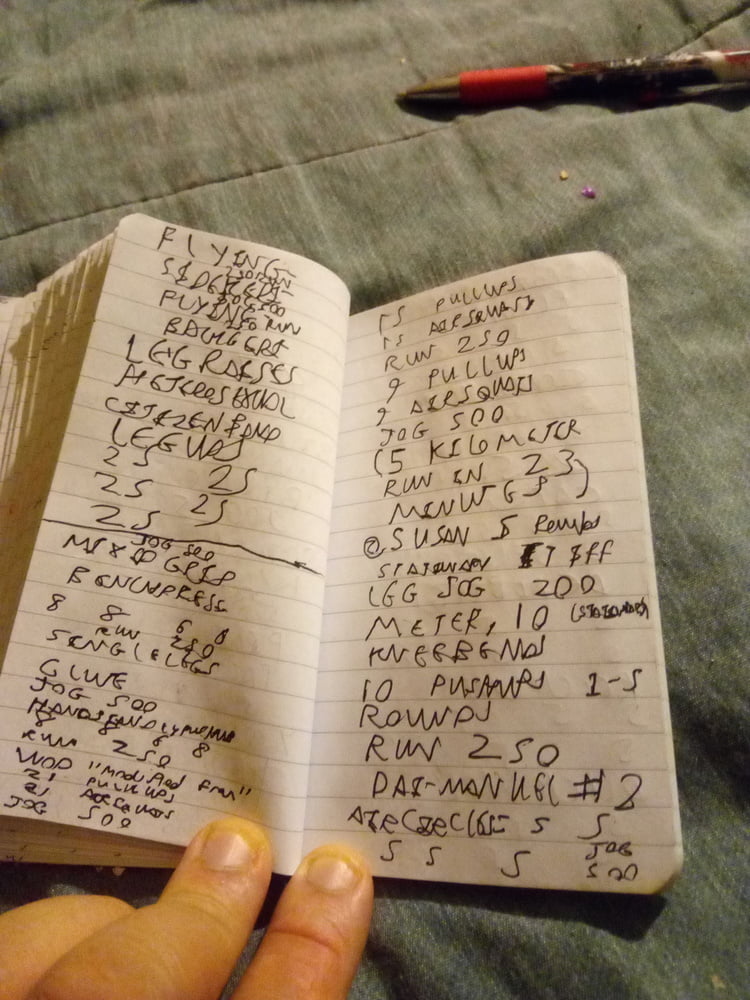 FLYING
250 RUN
SIDE
JOG 500
FLYING
250 RUN
LEG RAISES
LEG UPS
25 25
25 25
25
JOG 500
MIXED GRIP
BENCHPRESS
8 8 6 8
RUN 250
SINGLE LEGS
GLUTE
JOG 500
8 8 6 8
RUN 250
WOD "modified fran"
21 PULLUPS
21 AIRSQUATS
JOG 500
15 PULLUPS
15 AIRSQUATS
RUN 250
9 PULLUPS
9 AIRSQUATS
JOG 500
(5 KILOMETER
RUN IN 23
@ SUSAN 5 Rounds
STATIONARY STIFF
LEG JOG 200
METER, 10 (STATIONARY)
KNEEBENDS
10 PUSHUPS 1-5
ROUNDS
RUN 250
#2
5 5
5 5 5 JOG
500